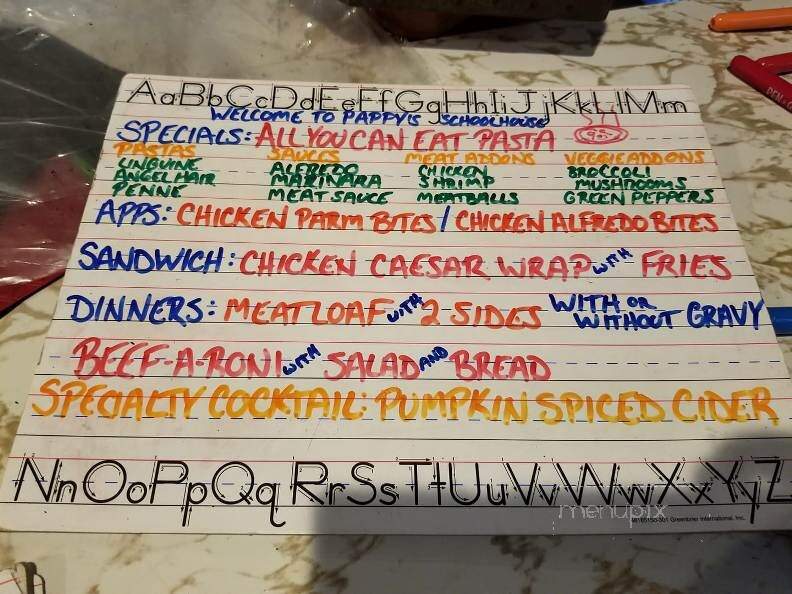 AaBbCcDdEeFfGgHhIiJjKkLlMm
WELCOME TO PAPPY'S SCHOOLHOUSE
SPECIALS: ALL YOU CAN EAT PASTA
PASTAS SAUCES MEAT ADDONS VEGGIE ADDONS
LINGUINE ALFREDO CHICKEN BROCCOLI
ANGEL HAIR MARINARA SHRIMP MUSHROOMS
PENNE MEAT SAUCE MEATBALLS GREEN PEPPERS
APPS: CHICKEN PARM BITES / CHICKEN ALFREDO BITES
SANDWICH: CHICKEN CAESAR WRAP WITH FRIES
DINNERS: MEATLOAF WITH 2 SIDES WITH OR WITHOUT GRAVY
BEEF-A-RONI WITH SALAD AND BREAD
SPECIALTY COCKTAIL: PUMPKIN SPICED CIDER
NnOoPpQqRrSsTtUuVvWwXxYyZ
menupix
Greenbrier International, Inc.